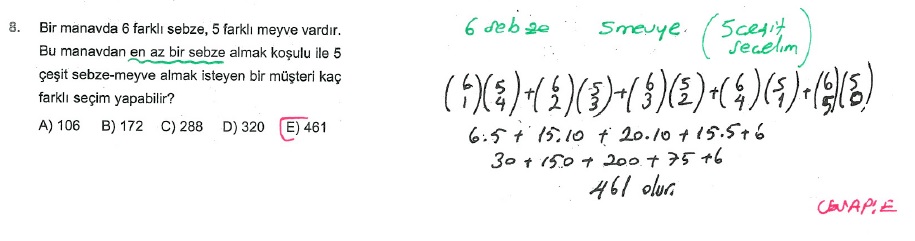 8. Bir manavda 6 farklı sebze, 5 farklı meyve vardır.
Bu manavdan en az bir sebze almak koşulu ile 5
çeşit sebze-meyve almak isteyen bir müşteri kaç
farklı seçim yapabilir?
A) 106 B) 172 C) 288 D) 320 E) 461
6 sebze 5 meyve. (5 çeşit
seçelim)
(6 1)(5 4)+(6 2)(5 3)+(6 3)(5 2)+(6 4)(5 1)+(6 5)(5 0)
6.5 + 15.10 + 20.10 + 15.5+6
30 + 150 + 200 + 75 +6
461 olur.
CEVAP:E